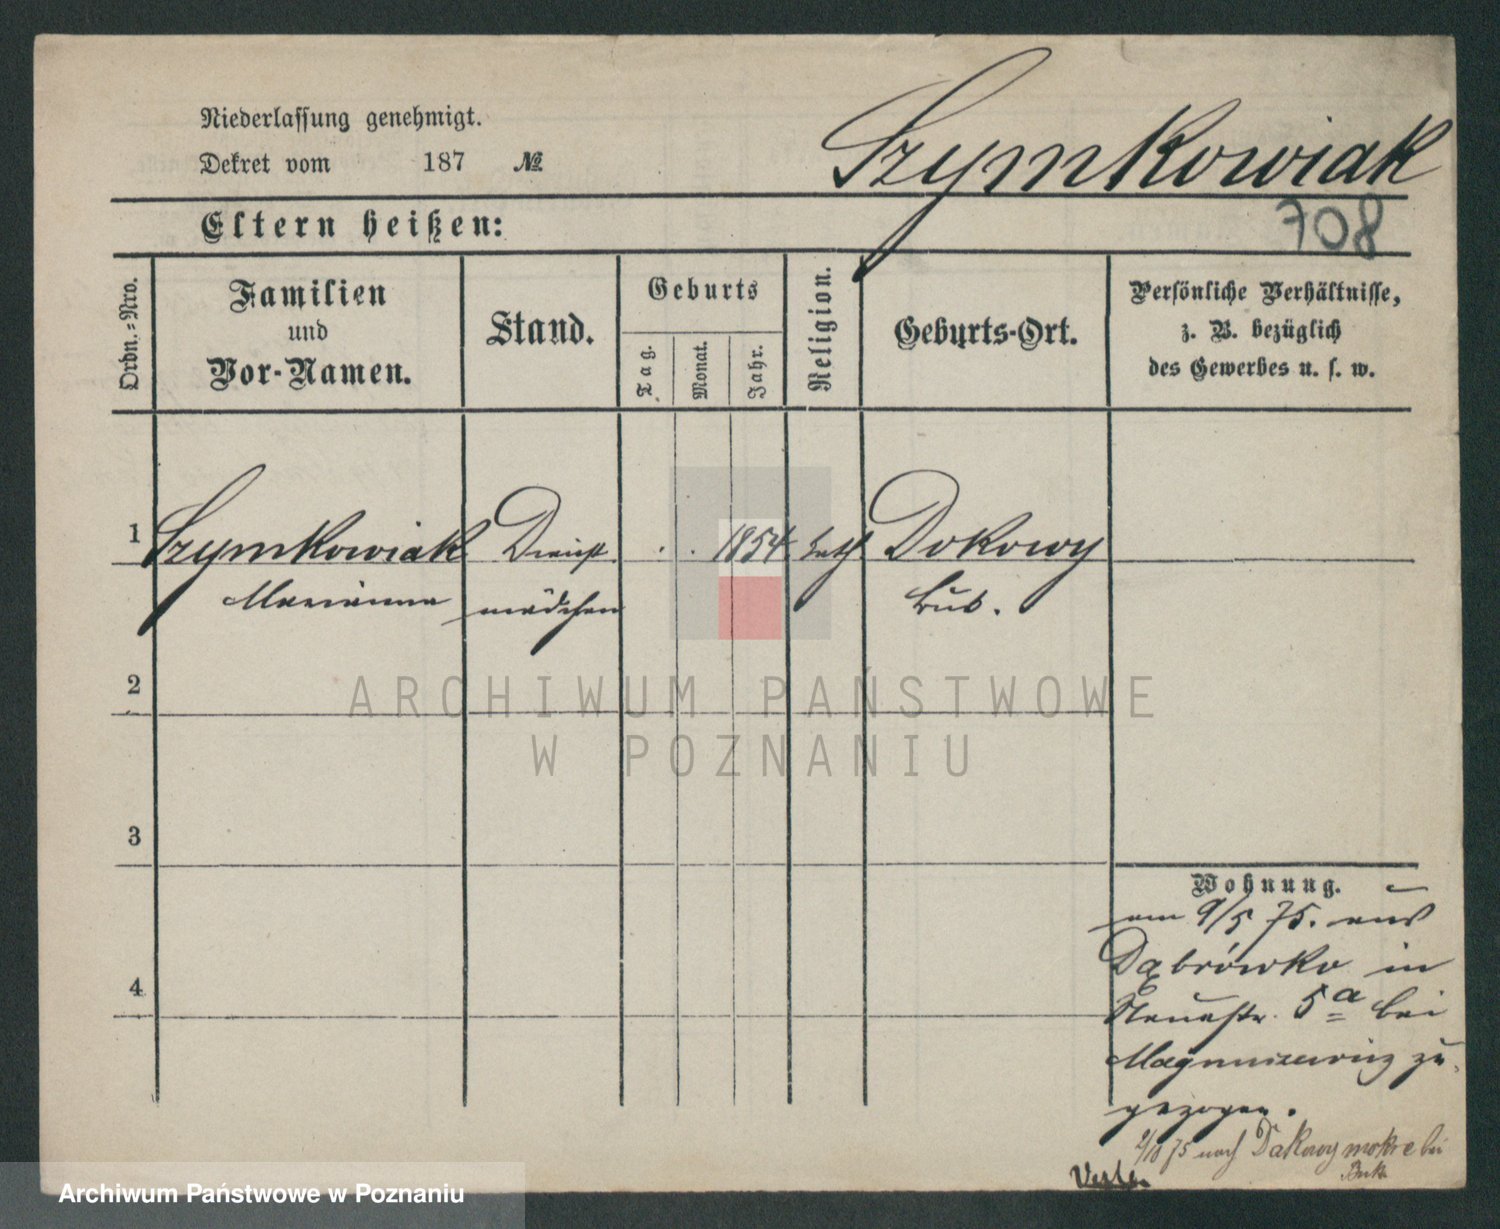 Niederlassung genehmigt.
Szymkowiak
Dekret vom 187 №
Eltern heißen:
708
Ordn.=Nro.
Familien
und
Vor-Namen.
Stand.
Geburts
Tag.
Monat.
Jahr.
Religion.
Geburts-Ort.
Persönliche Verhältnisse,
z. B. bezüglich
des Gewerbes u. s. w.
1 Szymkowiak Dienst 1854 kath Dokowy
Marianna mädchen
Buk.
2
ARCHIWUM PAŃSTWOWE
W POZNANIU
3
Wohnung.
am 9/5 75. aus
Dąbrówko in
4
Neuestr. 5a bei
zu
gezogen.
75 nach Dakowy mokre bei
Buk
Archiwum Państwowe w Poznaniu